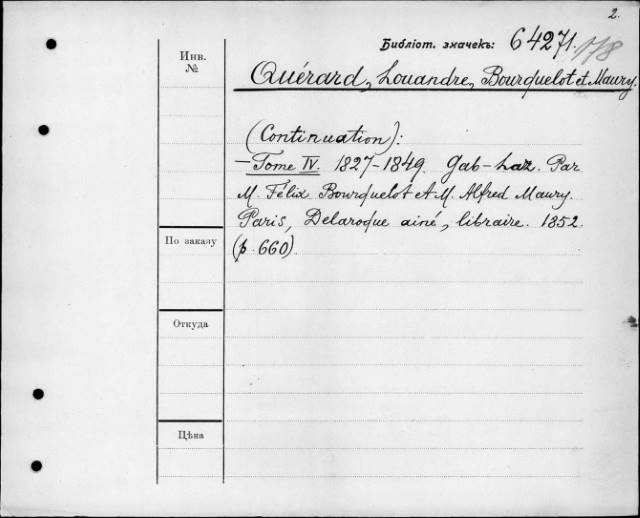 2.
Библіот. значекъ: 64271. 1/8
Инв.
№
Quérard, Louandre, Bourquelot et Maury.
(Continuation):
— Tome IV. 1827-1849. Gab-Laz. Par
M. Félix Bourquelot et M. Alfred Maury.
Paris, Delaroque ainé, libraire. 1852.
(p. 660).
По заказу
Откуда
Цѣна